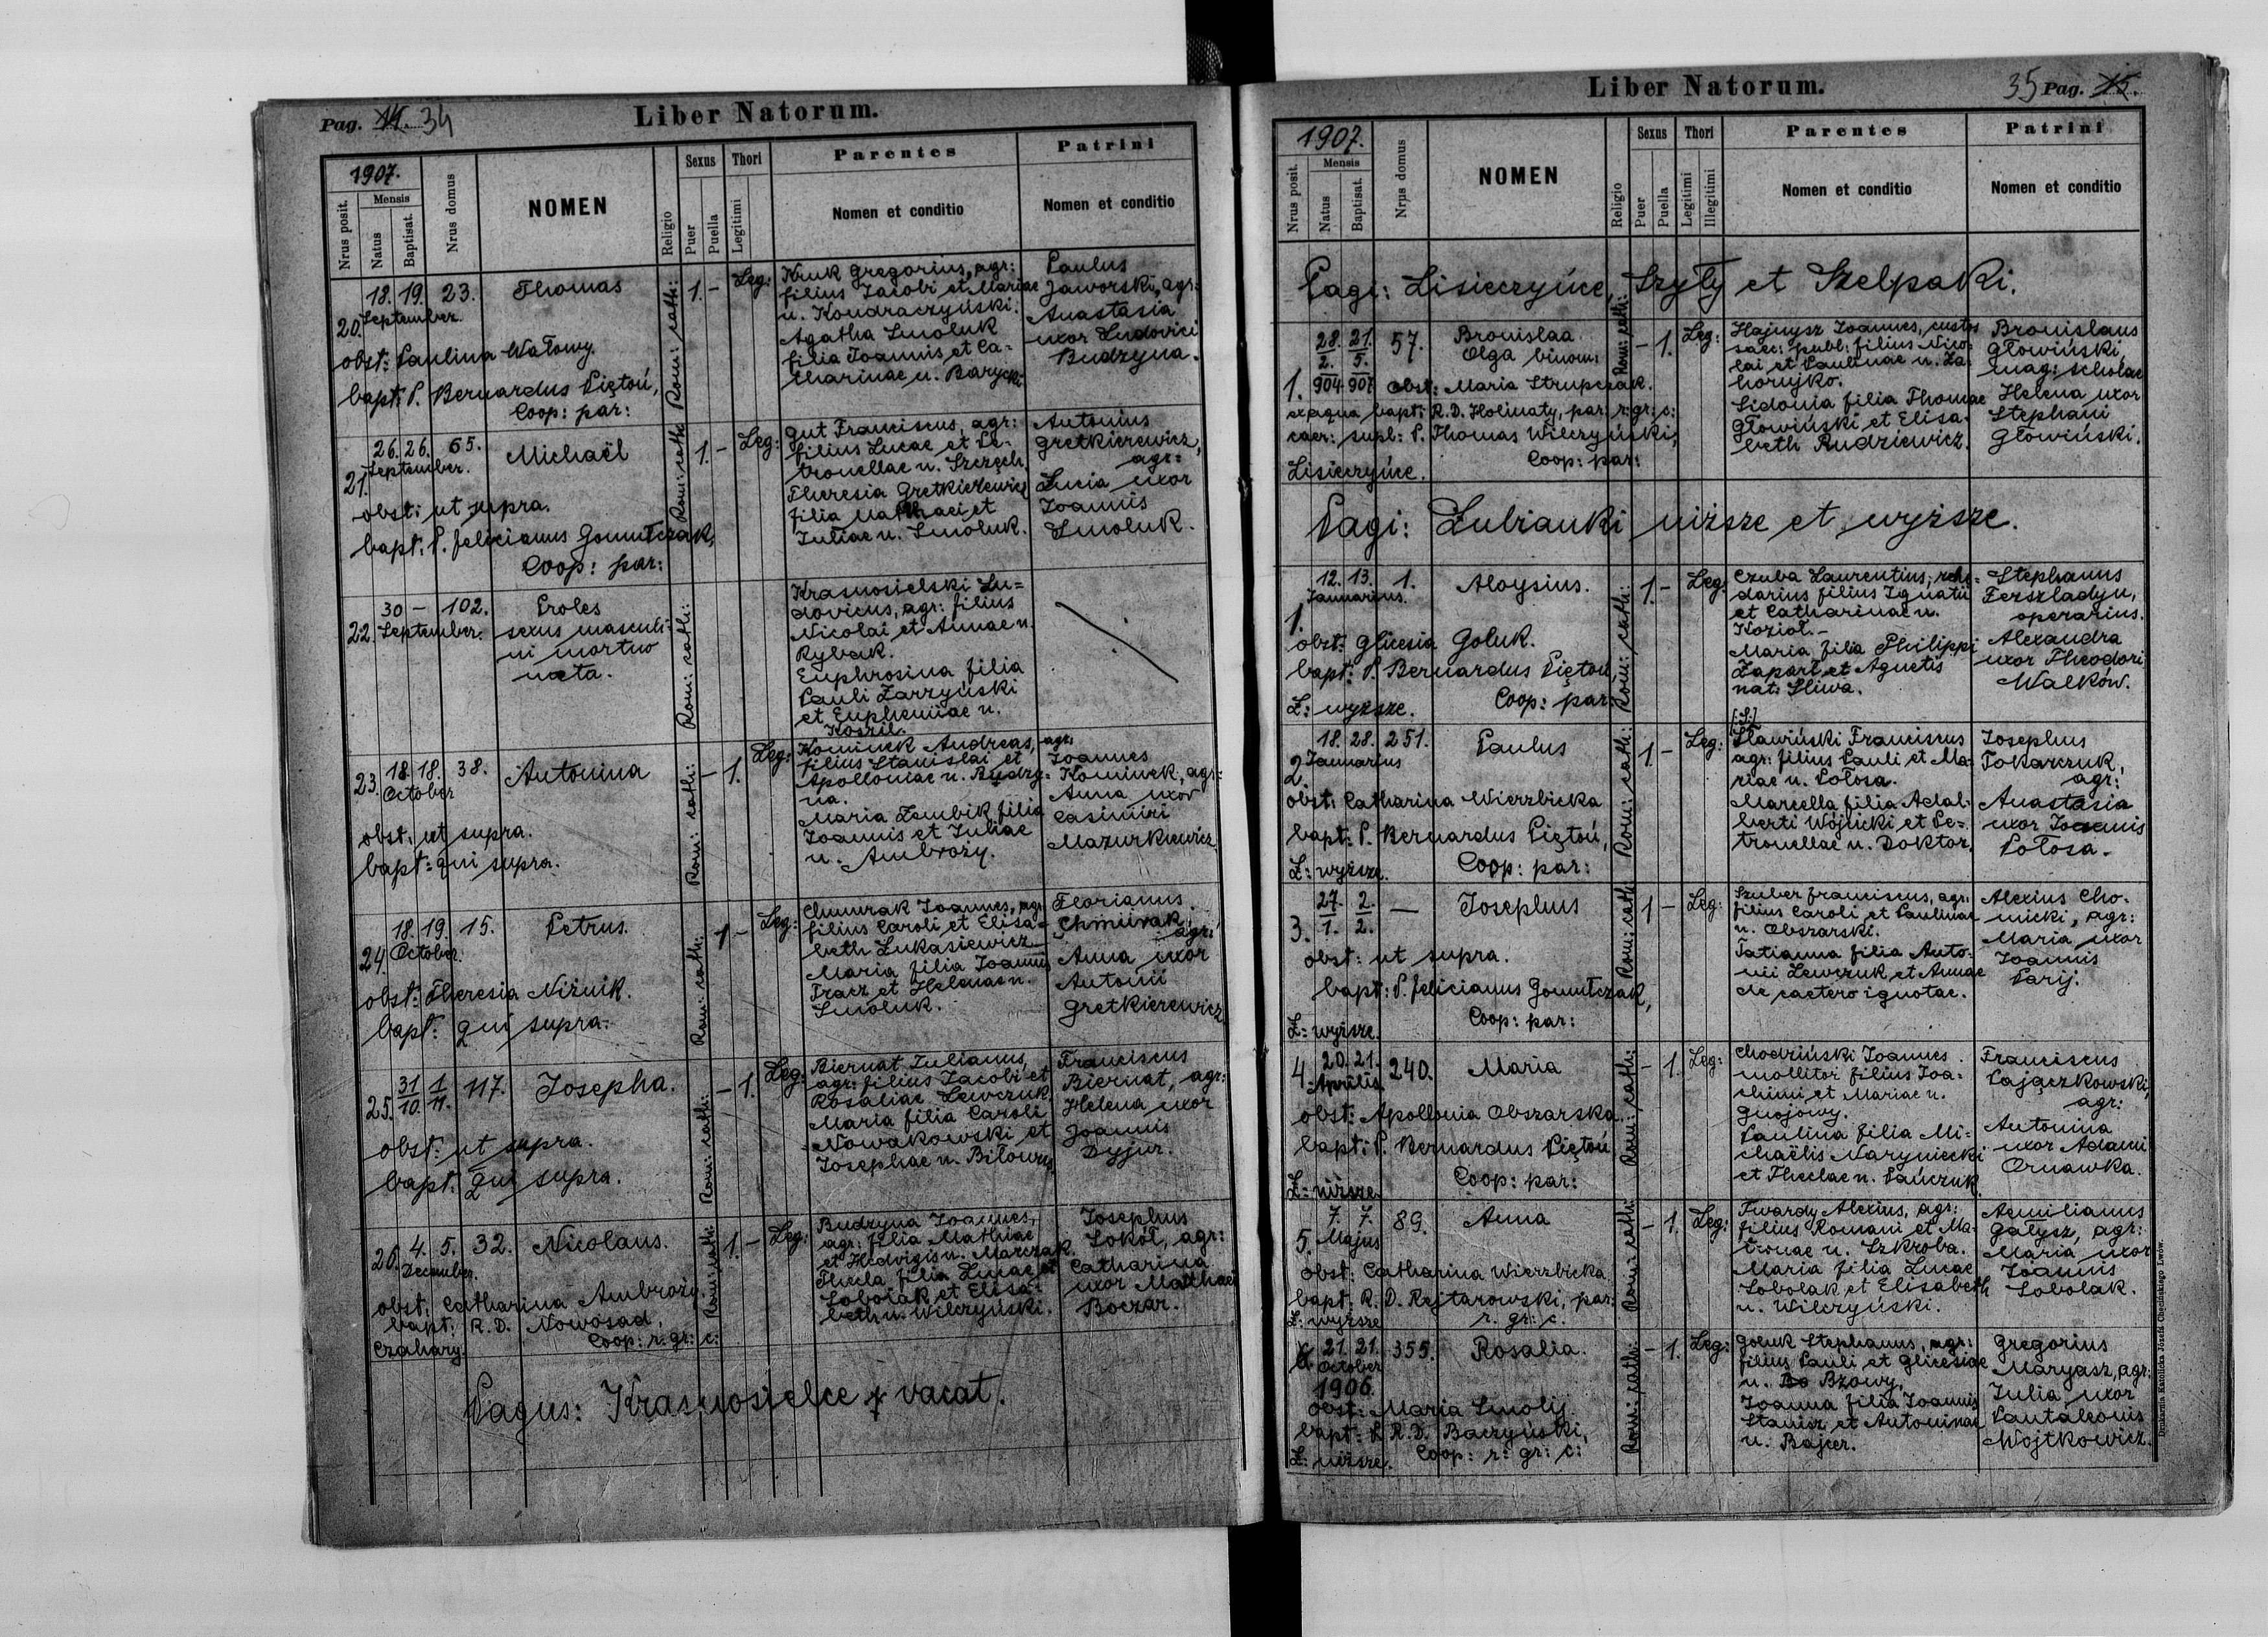 Pag. 14. 34
Liber Natorum.
1907.
Nrus posit.
Mensis
Natus
Baptisat.
Nrus domus
NOMEN
Religio
Sexus
Puer
Puella
Thori
Legitimi
Parentes
Nomen et conditio
Patrini
Nomen et conditio
20. 18. 19. September. 23.
Thomas
Rom: cath:
1. -
Leg:
Kruk Gregorius, agr:
filius Jacobi et Mariae
n. Kondraczyński.
Agatha Smoluk
filia Joannis et Ca-
tharinae n. Barycki
Paulus
Jaworski, agr:
Anastasia
uxor Ludovici
Budzyna.
obst: Paulina Watowy.
bapt: P. Bernardus Piętoń,
Coop: par:
21. 26. 26. September. 65.
Michaël
Rom: cath:
1. -
Leg:
Gut Franciscus, agr:
filius Lucae et Pe-
tronellae n. Szczęch.
Theresia Gretkierewicz
filia Mathaei et
Juliae n. Smoluk.
Antonius
Gretkierewicz,
agr:
Lucia uxor
Joannis
Smoluk.
obst: ut supra.
bapt: P. Felicianus Gomułczak,
Coop: par:
22. 30 - September. 102.
Proles
sexus masculi-
ni mortuo
nata.
Rom: cath:
Krasnosielski Lu=
dovicus, agr: filius
Nicolai et Annae n.
Rybak.
Euphrosina filia
Pauli Zarzyński
et Euphemiae n.
Koszil.
23. 18. 18. October 38.
Antonina
Rom: cath:
- 1.
Leg:
Kominek Andreas, agr:
filius Stanislai et
Apolloniae n. Budzy-
na.
Maria Zembik filia
Joannis et Juliae
n. Ambroży.
Joannes
Kominek, agr:
Anna uxor
Casimiri
Mazurkiewicz.
obst: ut supra.
bapt: qui supra.
24. 18. 19. October. 15.
Petrus.
Rom: cath:
1 -
Leg:
Chmurak Joannes, agr
filius Caroli et Elisa-
beth Łukasiewicz
Maria filia Joannis
Tracz et Helenae n.
Smoluk.
Florianus
Chmurak,
agr:
Anna uxor
Antonii
Gretkierewicz.
obst: Theresia Niżnik.
bapt: qui supra.
25. 31/10. 1/11. 117.
Josepha.
Rom: cath:
- 1.
Leg:
Biernat Julianus,
agr: filius Jacobi et
Rosaliae Lewczuk.
Maria filia Caroli
Nowakowski et
Josephae n. Bilowus
Franciscus
Biernat, agr:
Helena uxor
Joannis
Dyjur.
obst: ut supra.
bapt: qui supra.
26. 4. 5. December. 32.
Nicolaus.
Rom: cath:
1. -
Leg:
Budzyna Joannes,
agr: filia Mathiae
et Hedvigis n. Marczak.
Thecla filia Lucae et
Sobolak et Elisa-
beth n. Wilczyński.
Josephus
Sokół, agr:
Catharina
uxor Matthaei
Boczar.
obst: Catharina Ambroży.
bapt: R. D. Nowosad,
Coop: r. gr: c:
Czahary.
Pagus: Krasnosielce vacat.
Liber Natorum.
35 Pag. 15.
1907.
Nrus posit.
Mensis
Natus
Baptisat.
Nrus domus
NOMEN
Religio
Sexus
Puer
Puella
Thori
Legitimi
Illegitimi
Parentes
Nomen et conditio
Patrini
Nomen et conditio
Pagi: Lisieczyńce, Szyły et Szelpaki.
1. 28./2. 904 21./5. 907 57.
Bronislaa
Olga binom:
Rom: cath:
- 1.
Leg:
Hajnysz Joannes, custos
saec: publ: filius Nico-
lai et Paulinae n. Za-
horujko.
Sidonia filia Thomae
Głowiński et Elisa-
beth Rudziewicz.
Bronislaus
Głowiński,
mag: scholae
Helena uxor
Stephani
Głowiński.
obst: Maria Strupczak.
ex aqua bapt: R. D. Holinaty, par: r: gr: c:
caer: supl: P. Thomas Wilczyński,
Coop: par:
Lisieczyńce.
Pagi: Łubianki niższe et wyższe.
1. 12. 13. Januarius. 1.
Aloysius.
Rom: cath:
1. -
Leg:
Czuba Laurentius, rhe-
darius filius Ignatii
et Catharinae n.
Kozioł.-
Maria filia Philippi
Zapart et Agnetis
nat: Śliwa.
Stephanus
Ferszladyn,
operarius.
Alexandra
uxor Theodori
Walków.
obst: Glicesia Goluk.
bapt: P. Bernardus Piętoń,
Coop: par:
Ł: wyższe.
2. 18. 28. Januarius 251.
Paulus
Rom: cath:
1 -
Leg:
[:S:]
Sławiński Franciscus
agr: filius Pauli et Ma-
riae n. Połosa.
Marcella filia Adal-
berti Wójcicki et Pe-
tronellae n. Doktor.
Josephus
Tokarczuk,
agr:
Anastasia
uxor Joannis
Połosa.
obst: Catharina Wierzbicka
bapt: P. Bernardus Piętoń,
Coop: par:
Ł: wyższe.
3. 27./1. 2./2. —
Josephus
Rom: cath:
1 -
Leg:
Szuber Franciscus, agr:
filius Caroli et Paulinae
n. Obszarski.
Tatianna filia Anto-
nii Lewczuk et Annae
de caetero ignotae.
Alexius Cho-
micki, agr:
Maria uxor
Joannis
Parij.
obst: ut supra.
bapt: P. Felicianus Gomułczak,
Coop: par:
Ł: wyższe.
4. 20. 21. Aprilis 240.
Maria
Rom: cath:
- 1.
Leg:
Chodziński Joannes
mollitor filius Joa-
chimi et Mariae n.
Gnojowy.
Paulina filia Mi-
chaëlis Naryniecki
et Theclae n. Pańczuk.
Franciscus
Pajączkowski,
agr:
Antonina
uxor Adami
Ornawka.
obst: Apollonia Obszarska.
bapt: P. Bernardus Piętoń
Coop: par:
Ł: niższe.
5. 7. 7. Majus 89.
Anna
Rom: cath:
- 1.
Leg:
Twardy Alexius, agr:
filius Romani et Ma-
tronae n. Szkroba.
Maria filia Lucae
Sobolak et Elisabeth
n. Wilczyński.
Aemilianus
Gałysz, agr:
Maria uxor
Joannis
Sobolak.
obst: Catharina Wierzbicka
bapt: R. D. Rejtarowski, par:
r. gr: c.
Ł: wyższe
21. 21. October 1906. 355.
Rosalia.
Rom: cath:
- 1.
Leg:
Gołuk Stephanus, agr:
filius Pauli et Glicesiae
n. Bzowy,
Joanna filia Joannis
Stanisz et Antoninae
n. Bajcer.
Gregorius
Maryasz, agr:
Julia uxor
Pantaleonis
Wojtkowicz.
obst: Maria Smolij.
bapt: R. D. Baczyński,
Coop: r: gr: c:
Ł: niższe.
Drukarnia Katolicka Józefa Chęcińskiego Lwów.